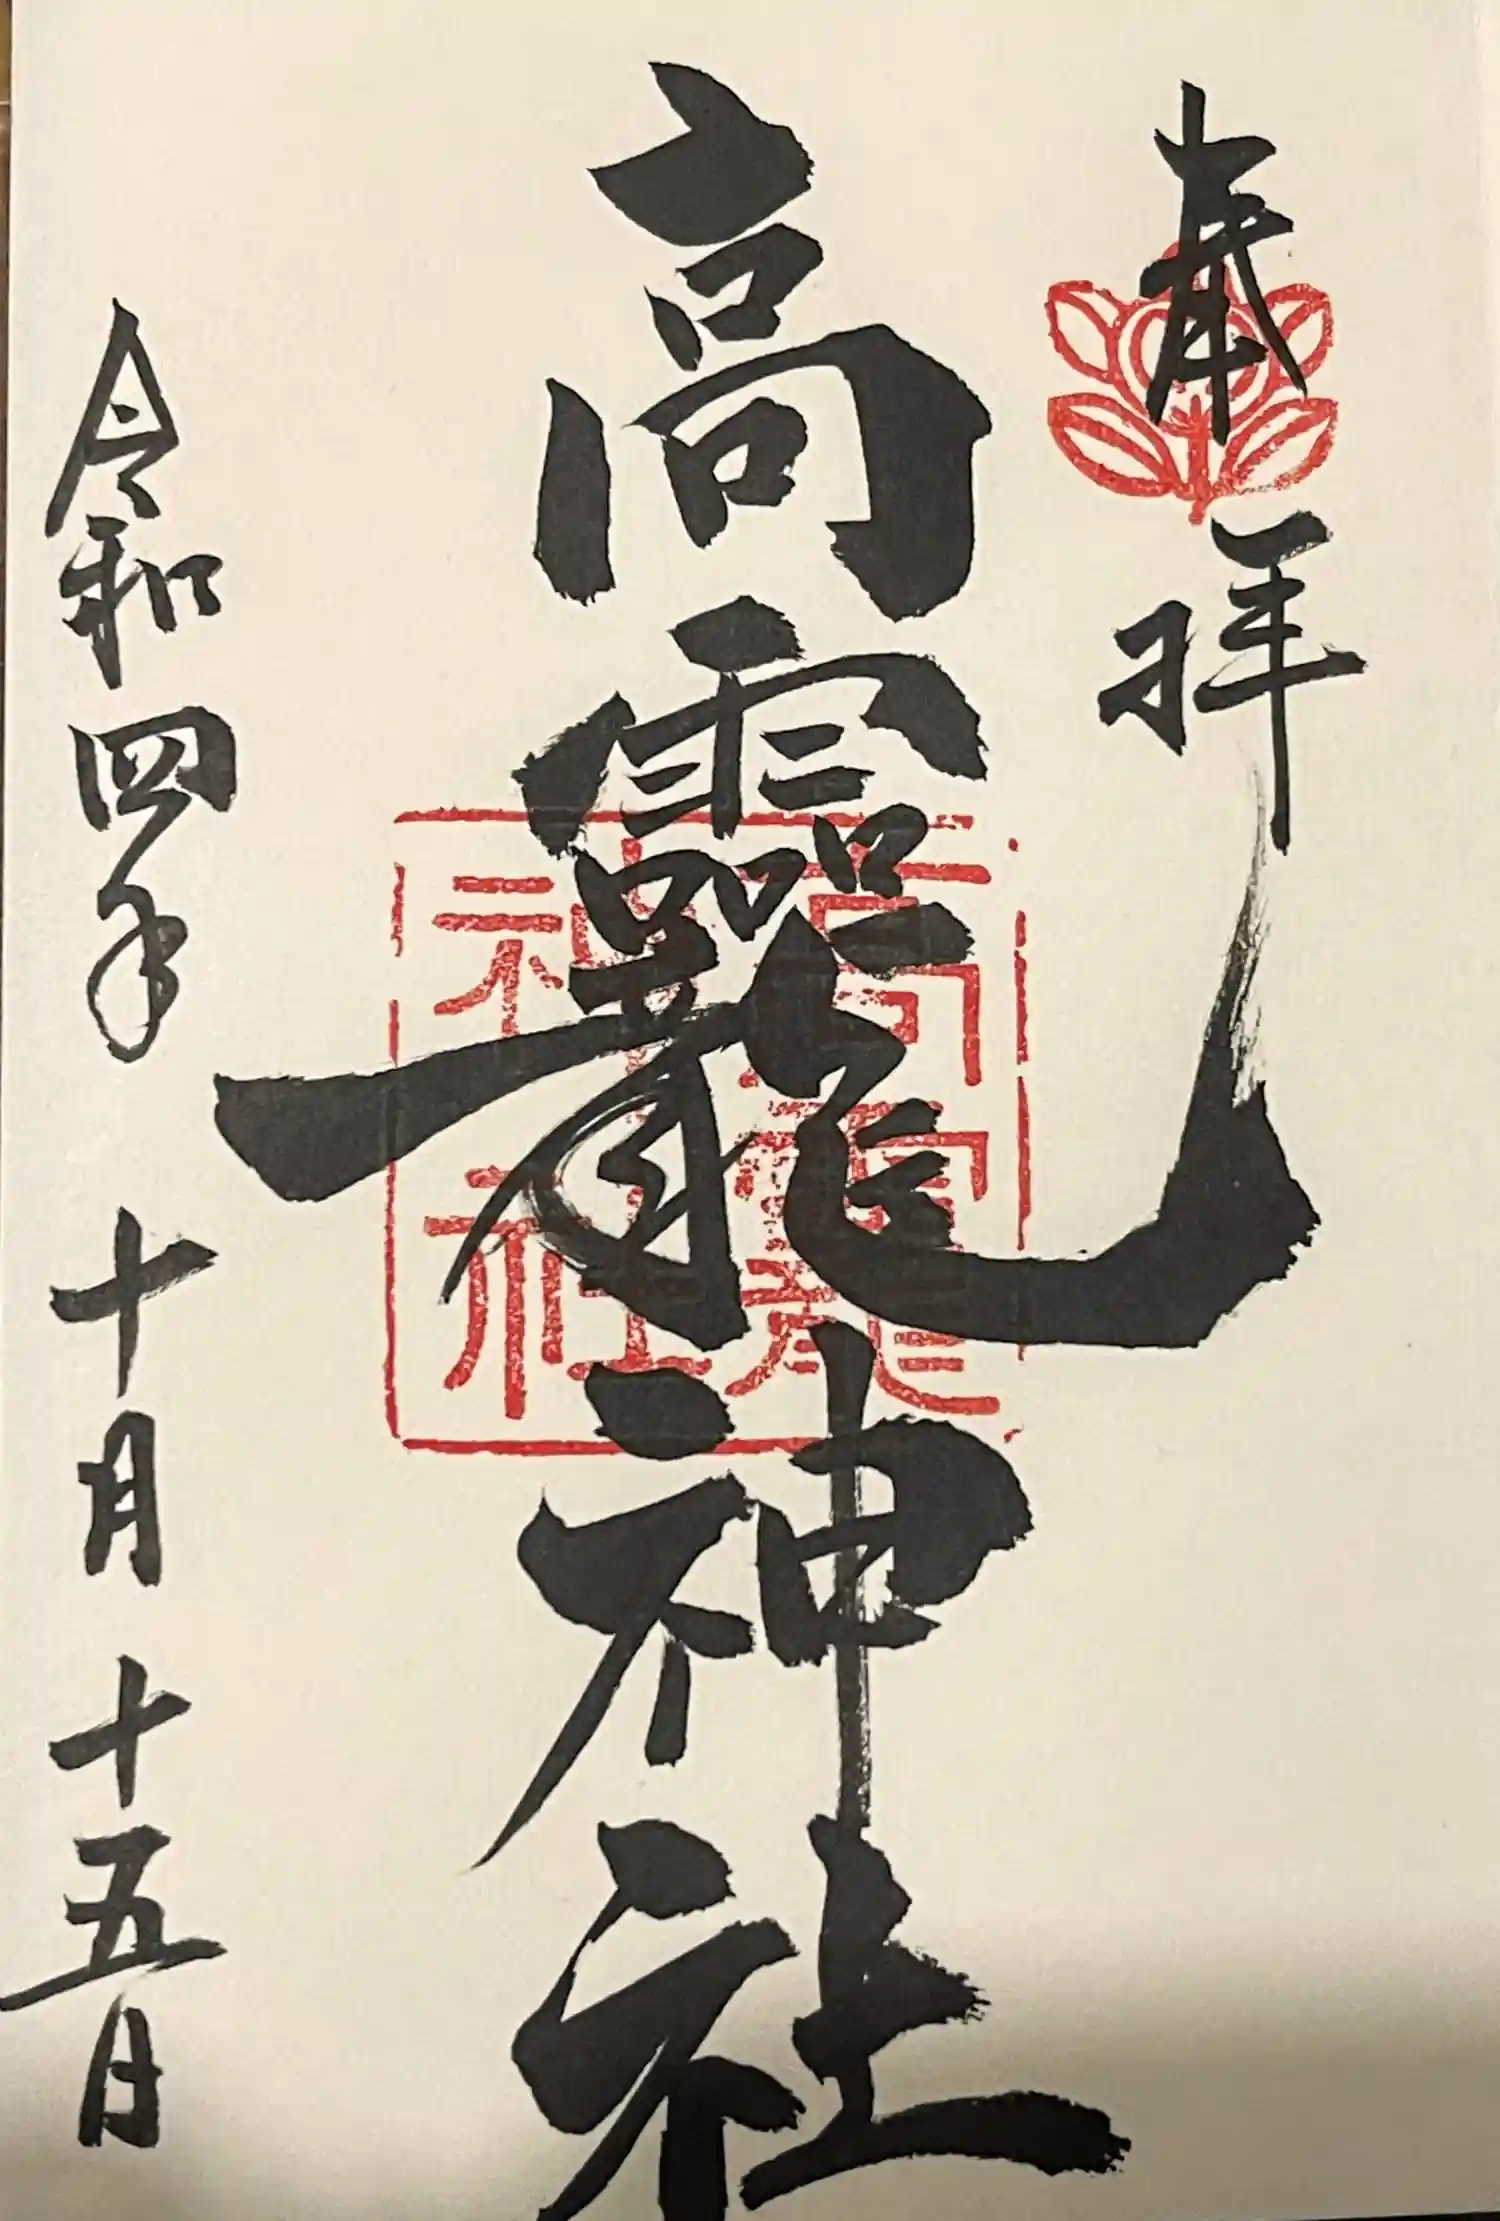 奉拝
高龗神社
高龗神社
令和四年十月十五日